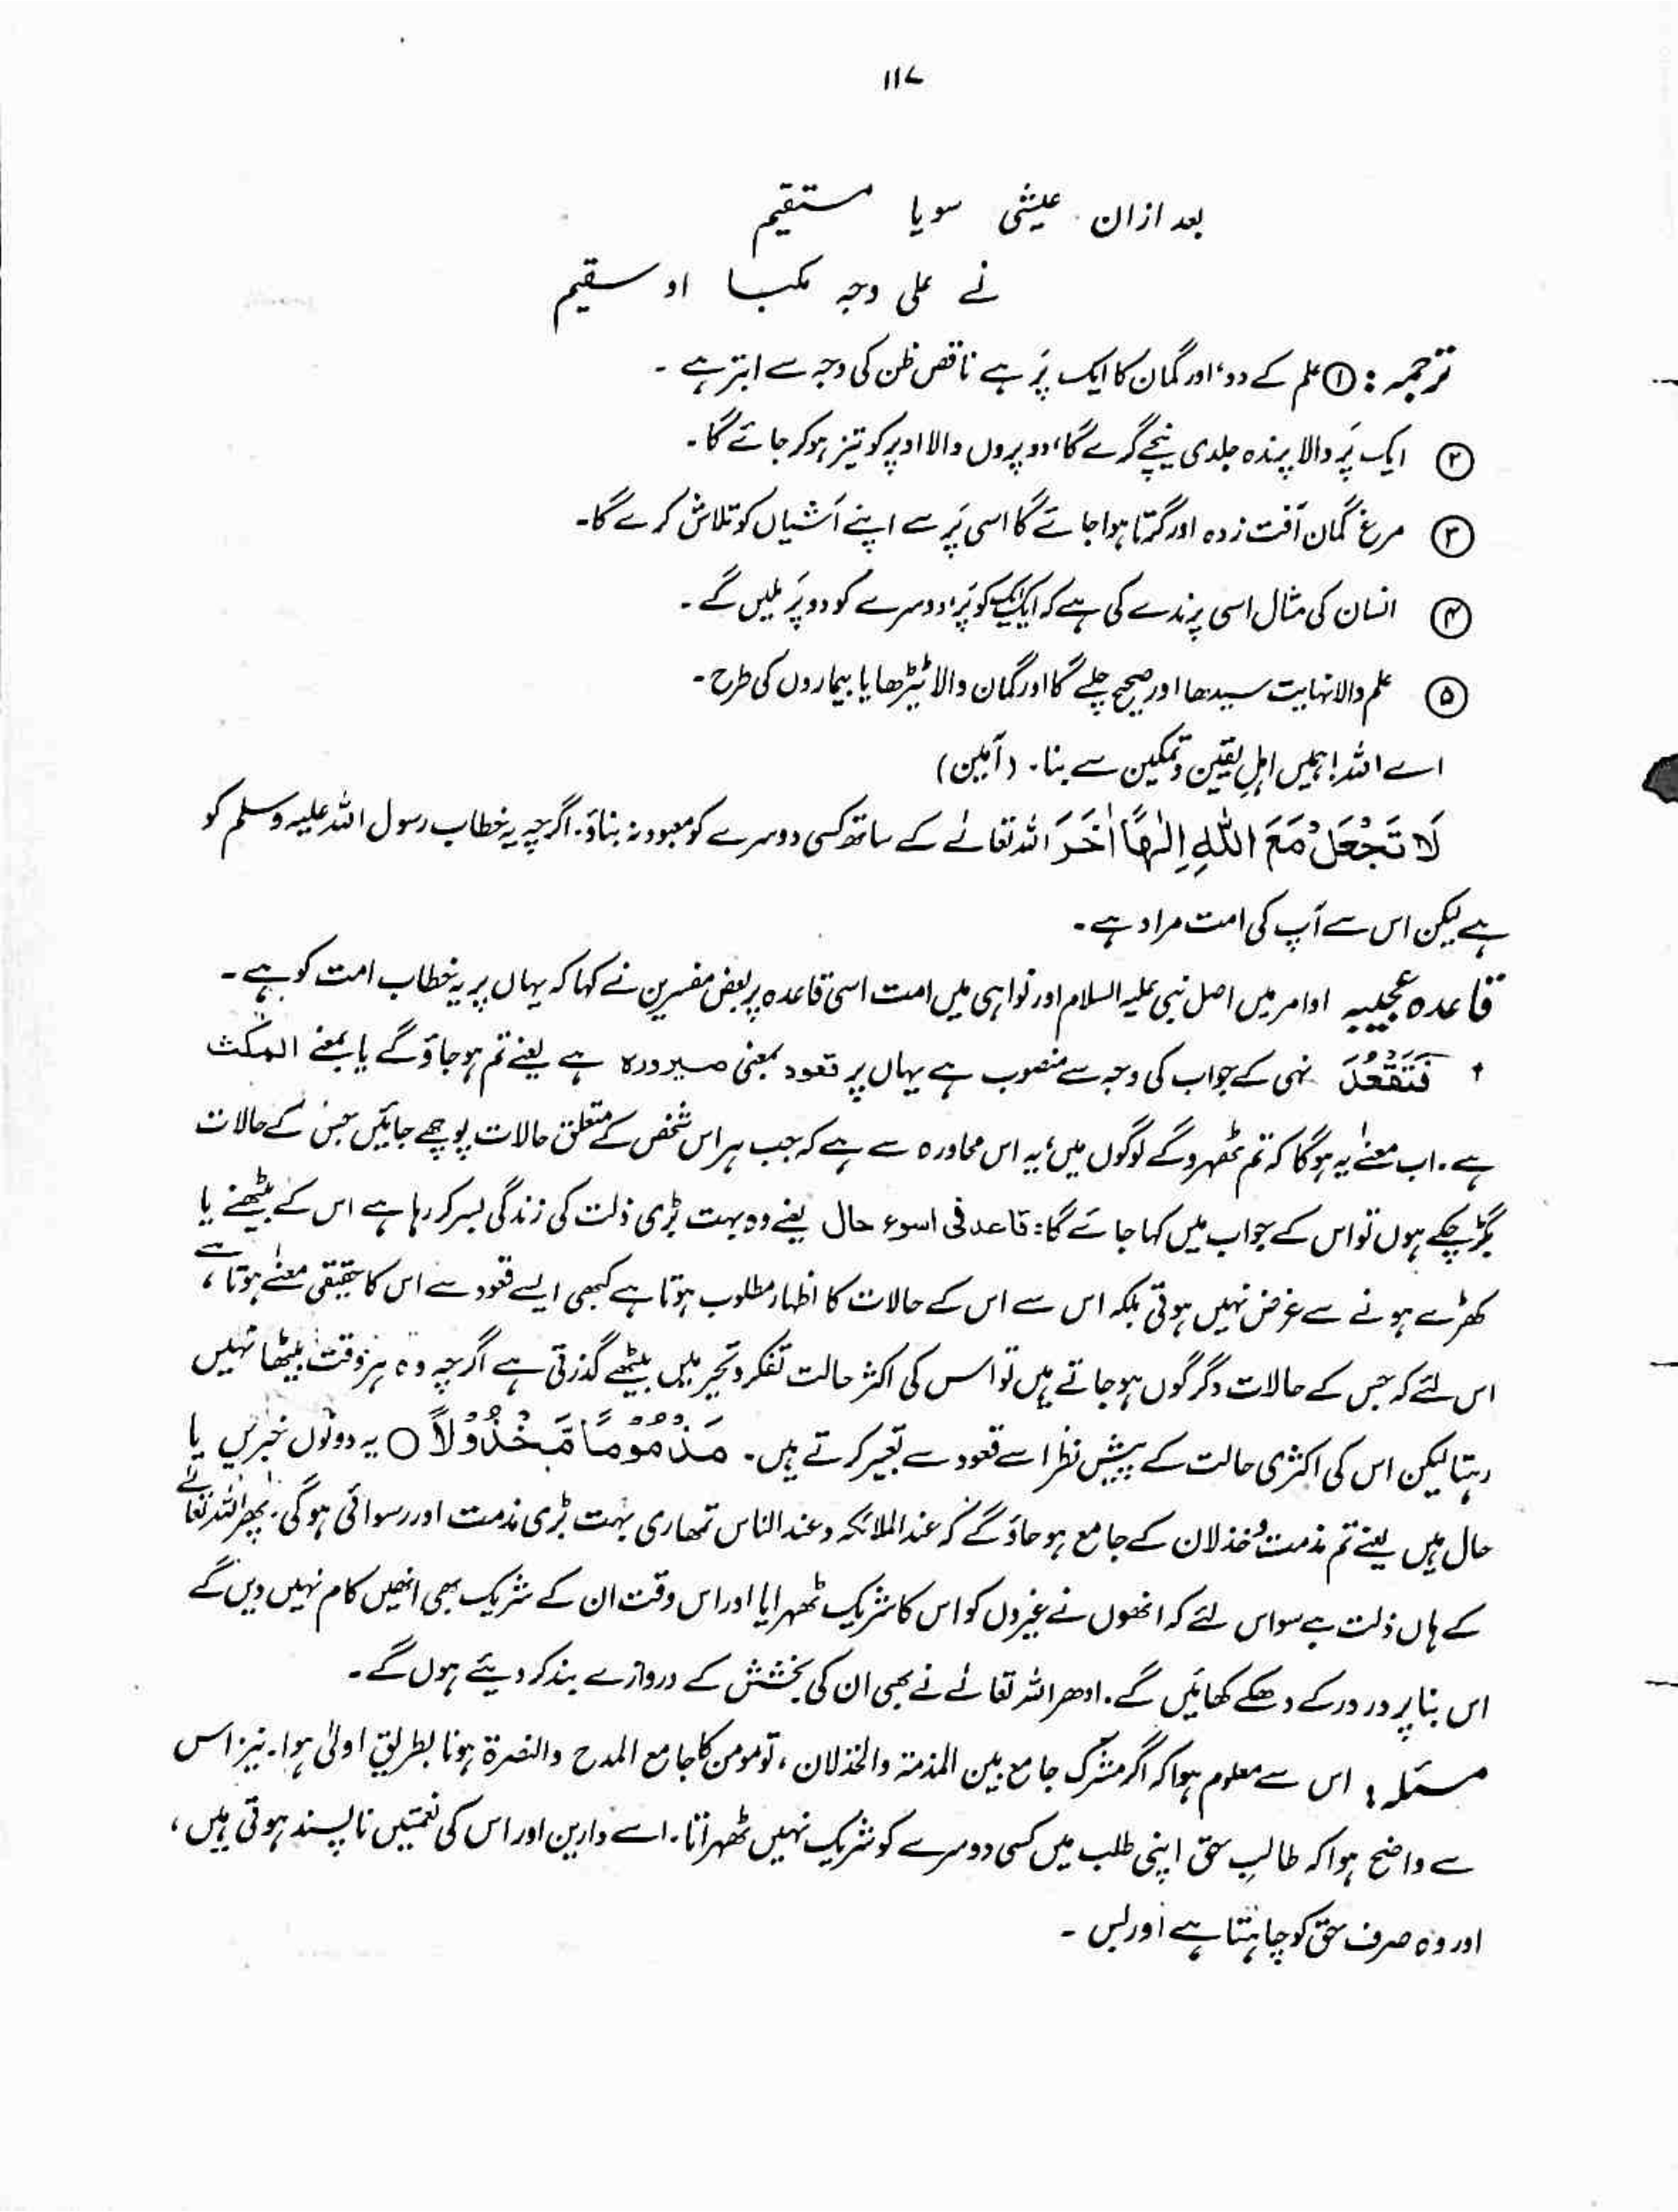 ۱۱۷
بعد ازان عیشی سویا مستقیم
نے علی وجہ مکبا او سقیم
ترجمہ : ① علم کے دو، اور گمان کا ایک پَر ہے ناقص ظن کی وجہ سے ابتر ہے ۔
② ایک پَر والا پرندہ جلدی نیچے گرے گا، دو پروں والا اوپر کو تیز ہو کر جائے گا۔
③ مرغ گمان آفت زدہ اور گرتا ہوا جائے گا اسی پَر سے اپنے آشیاں کو تلاش کرے گا۔
④ انسان کی مثال اسی پرندے کی ہے کہ ایک کو ایک پَر، دوسرے کو دو پَر ملیں گے ۔
⑤ علم والا نہایت سیدھا اور صحیح چلے گا اور گمان والا ٹیڑھا یا بیماروں کی طرح ۔
اے اللہ! ہمیں اہلِ یقین و تمکین سے بنا۔ (آمین)
لَا تَجْعَلْ مَعَ اللّٰهِ اِلٰهًا اٰخَرَ اللہ تعالےٰ کے ساتھ کسی دوسرے کو معبود نہ بناؤ۔ اگرچہ یہ خطاب رسول اللہ علیہ وسلم کو
ہے لیکن اس سے آپ کی امت مراد ہے ۔
قاعدہ عجیبہ اوامر میں اصل نبی علیہ السلام اور نواہی میں امت اسی قاعدہ پر بعض مفسرین نے کہا کہ یہاں پر یہ خطاب امت کو ہے ۔
فَتَقْعُدَ نہی کے جواب کی وجہ سے منصوب ہے یہاں پر قعود بمعنی صیرورہ ہے یعنے تم ہو جاؤ گے یا بمعنے المکث
ہے ۔ اب معنےٰ یہ ہو گا کہ تم ٹھہرو گے لوگوں میں، یہ اس محاورہ سے ہے کہ جب ہر اس شخص کے متعلق حالات پوچھے جائیں جس کے حالات
بگڑ چکے ہوں تو اس کے جواب میں کہا جائے گا : قاعد فی اسوء حال یعنے وہ بہت بڑی ذلت کی زندگی بسر کر رہا ہے اس کے بیٹھنے یا
کھڑے ہونے سے غرض نہیں ہوتی بلکہ اس سے اس کے حالات کا اظہار مطلوب ہوتا ہے کبھی ایسے قعود سے اس کا حقیقی معنےٰ ہوتا ہے ،
اس لئے کہ جس کے حالات دگرگوں ہو جاتے ہیں تو اس کی اکثر حالت تفکر و تحیر میں بیٹھے گذرتی ہے اگرچہ وہ ہر وقت بیٹھا نہیں
رہتا لیکن اس کی اکثری حالت کے پیشِ نظر اسے قعود سے تعبیر کرتے ہیں۔ مَذْمُوْمًا مَّخْذُوْلًا ○ یہ دونوں خبریں یا
حال ہیں یعنے تم مذمت و خذلان کے جامع ہو جاؤ گے کہ عند الملائکہ و عند الناس تمھاری بہت بڑی مذمت اور رسوائی ہو گی۔ پھر اللہ تعالےٰ
کے ہاں ذلت ہے سو اس لئے کہ انھوں نے غیروں کو اس کا شریک ٹھہرایا اور اس وقت ان کے شریک بھی انھیں کام نہیں دیں گے
اس بنا پر در در کے دھکے کھائیں گے ۔ ادھر اللہ تعالےٰ نے بھی ان کی بخشش کے دروازے بند کر دیئے ہوں گے ۔
مسئلہ : اس سے معلوم ہوا کہ اگر مشرک جامع بین المذمۃ والخذلان ، تو مومن کا جامع المدح والنصرۃ ہونا بطریقِ اولیٰ ہوا۔ نیز اس
سے واضح ہوا کہ طالبِ حق اپنی طلب میں کسی دوسرے کو شریک نہیں ٹھہراتا ۔ اسے دارین اور اس کی نعمتیں ناپسند ہوتی ہیں ،
اور وہ صرف حق کو چاہتا ہے اور بس ۔